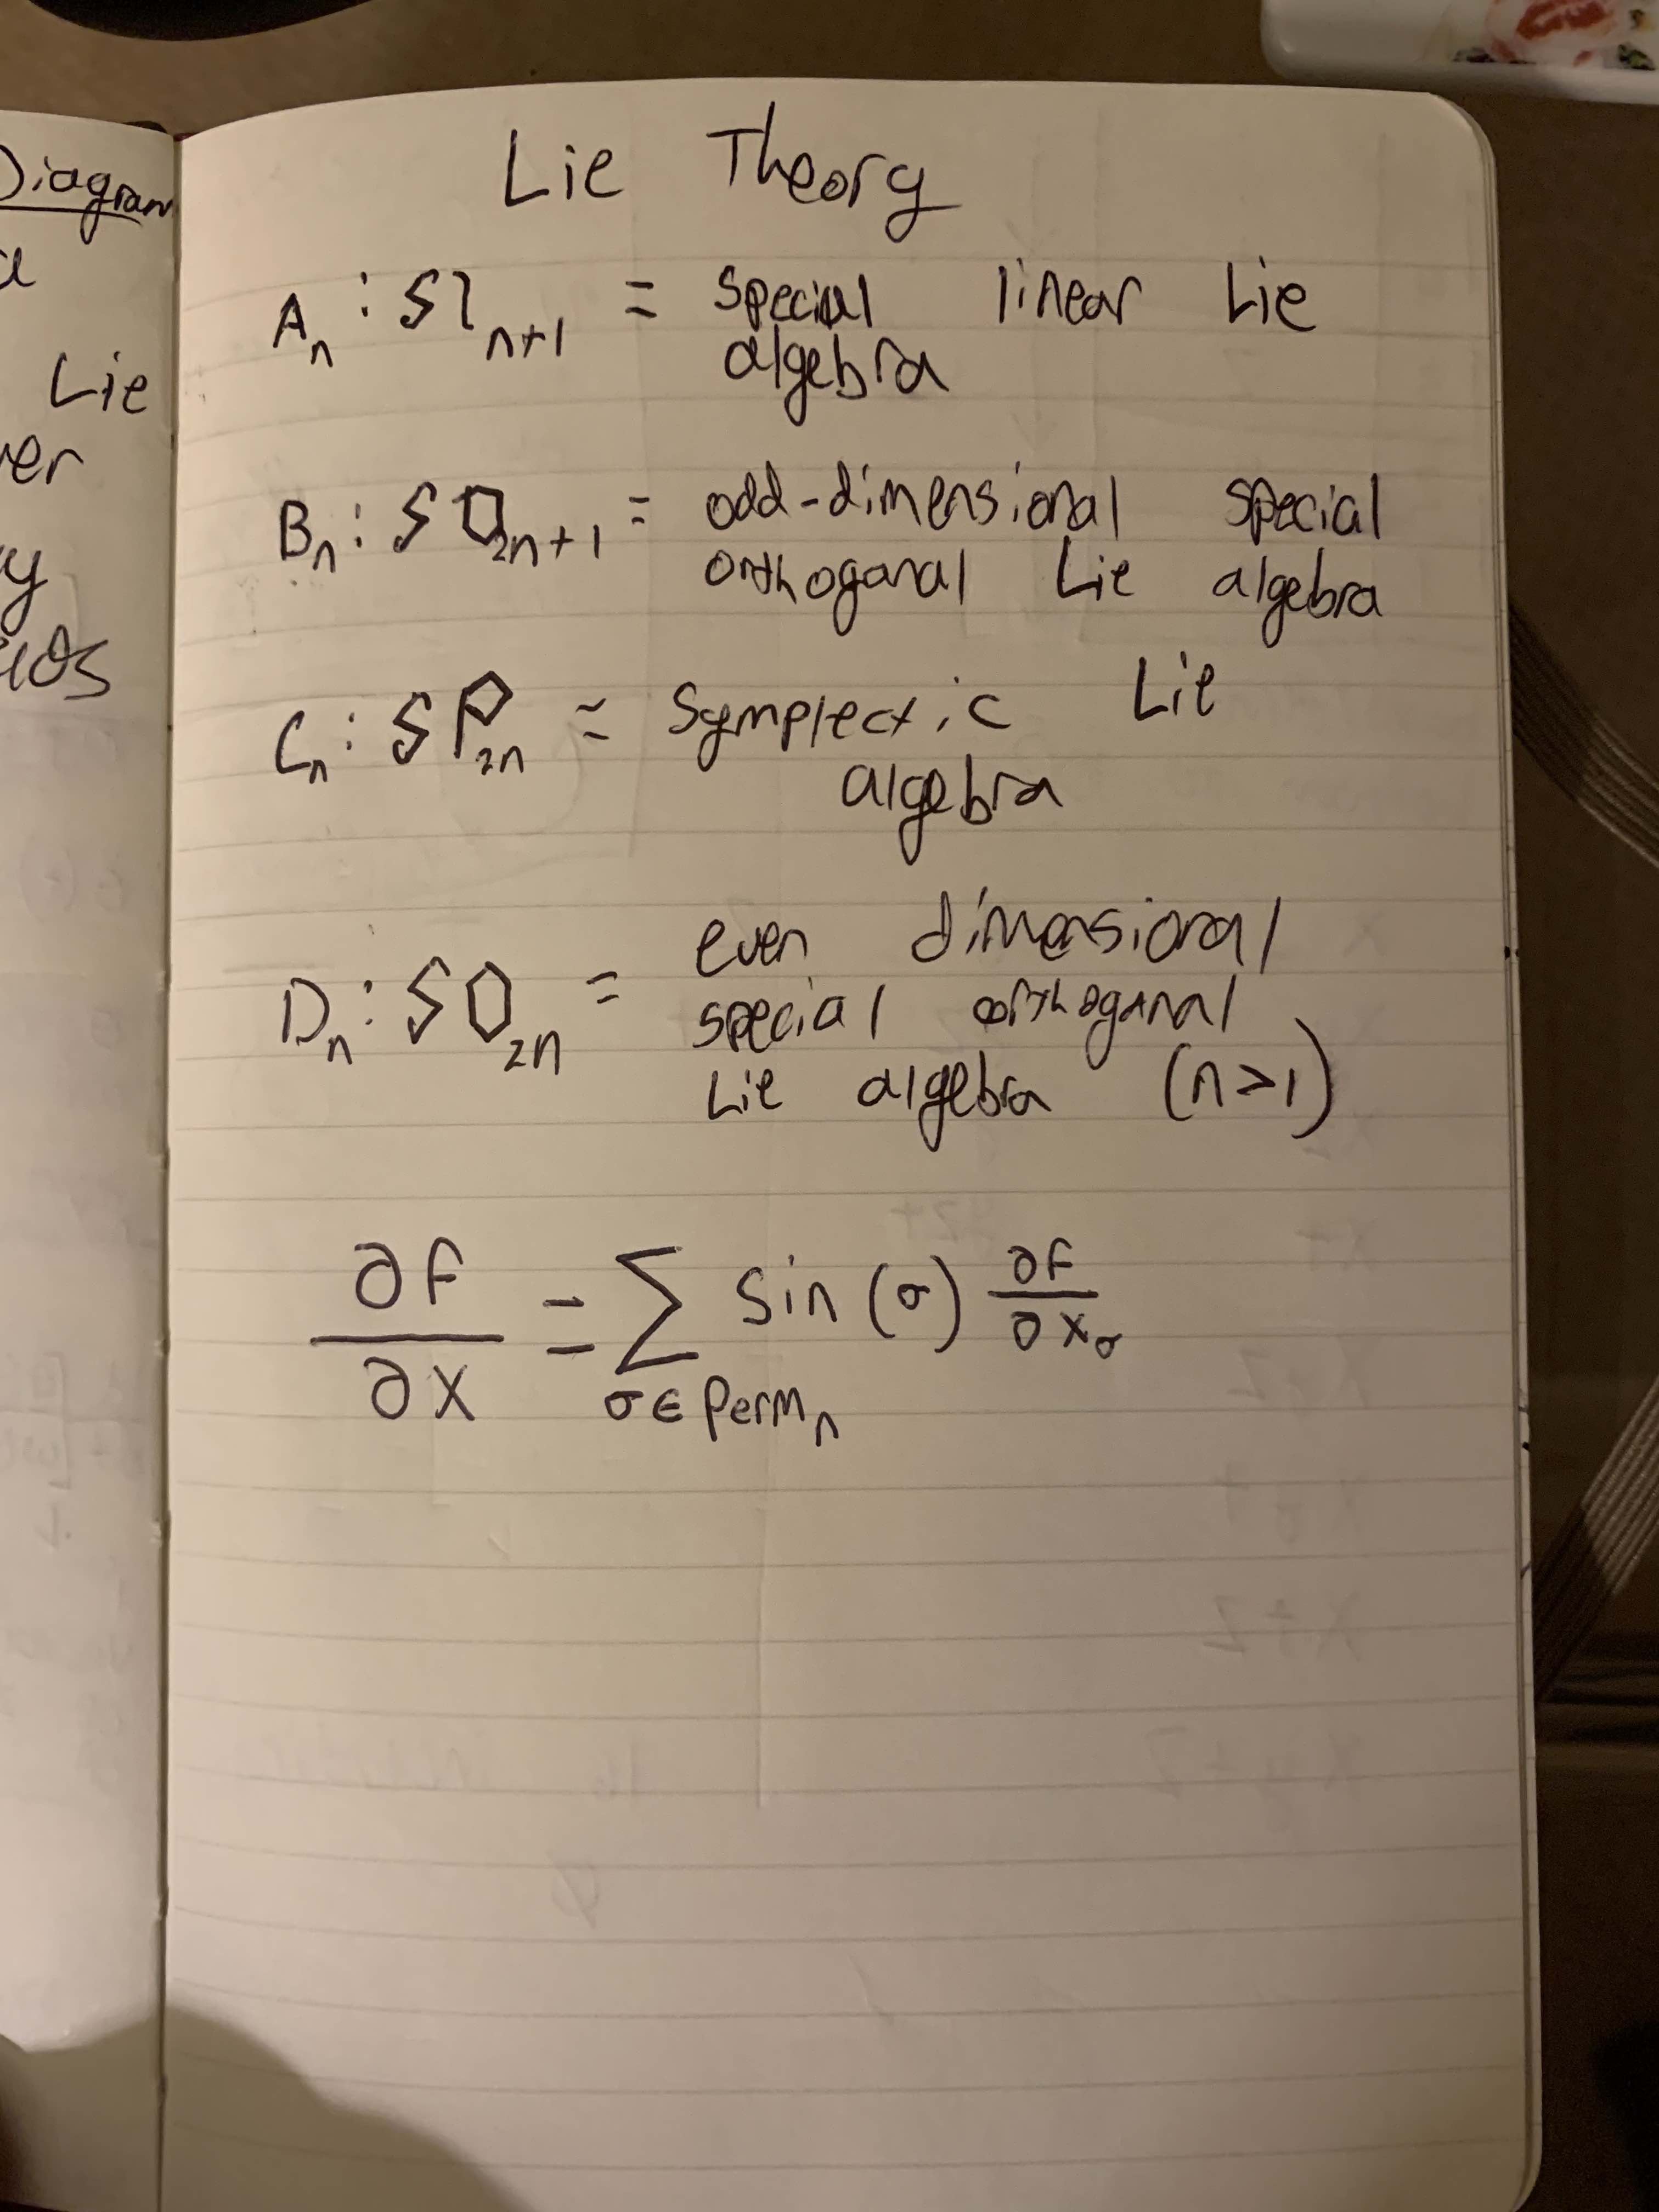 Diagram
Lie
Lie Theory
Aₙ : 𝔰𝔩ₙ₊₁ = special linear Lie
algebra
Bₙ : 𝔰𝔬₂ₙ₊₁ = odd-dimensional special
orthoganal Lie algebra
Cₙ : 𝔰𝔭₂ₙ = Symplectic Lie
algebra
even dimensional
Dₙ : 𝔰𝔬₂ₙ = special orthoganal
Lie algebra (n>1)
∂f/∂x = ∑ sin(σ) ∂f/∂xσ
σ∈Permₙ